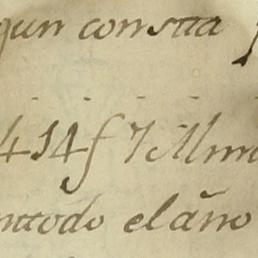 gun consta
414f 7 Mm
nttodo el año